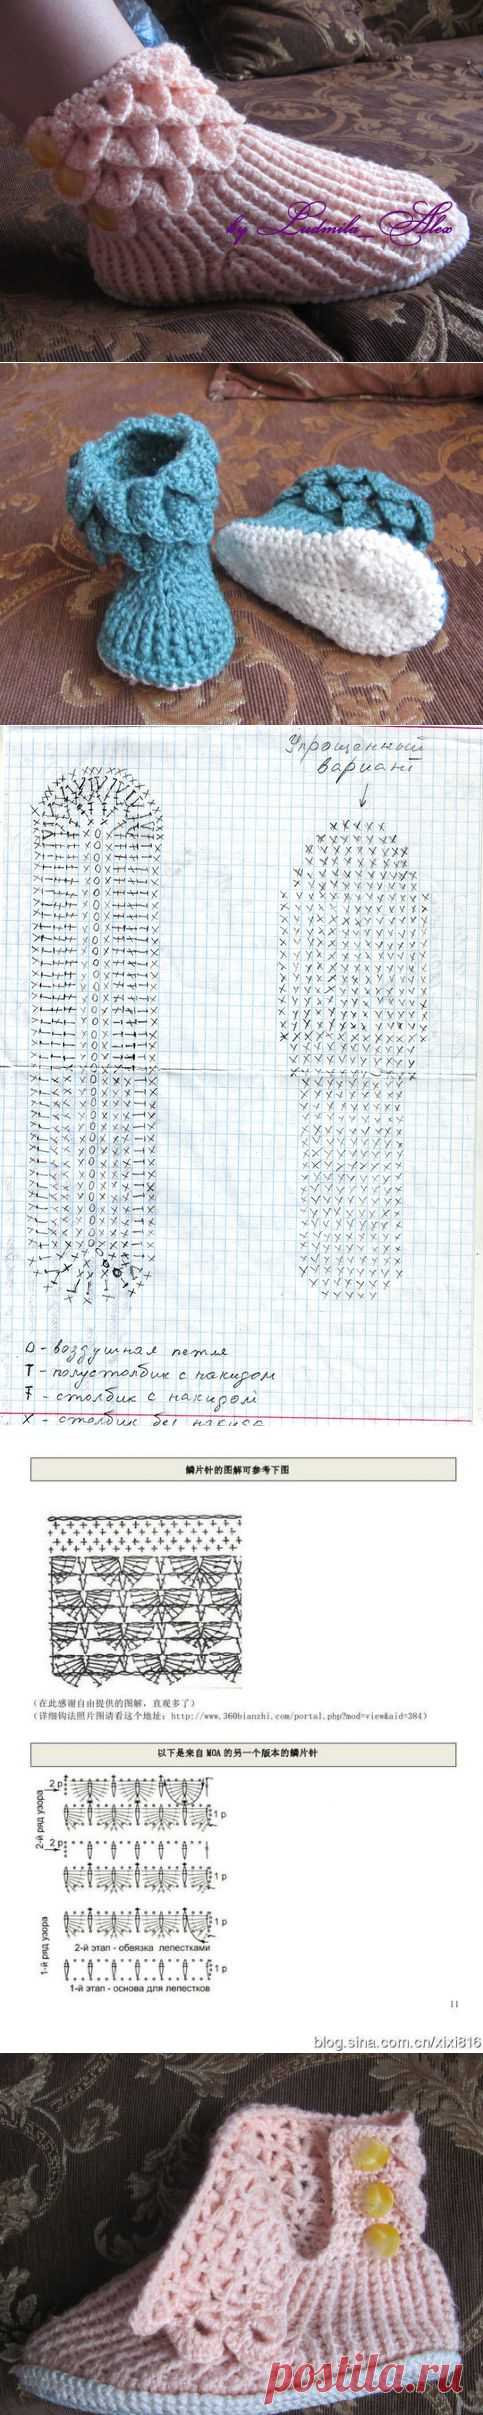 by Ludmila_Alex
Упрощенный
вариант
О - воздушная петля
Т - полустолбик с накидом
Ŧ - столбик с накидом
Х - столбик без накида
鳞片针的图解可参考下图
（在此感谢自由提供的图解，直观多了）
（详细钩法照片图请看这个地址：http://www.360bianzhi.com/portal.php?mod=view&aid=384）
以下是来自 MOA 的另一个版本的鳞片针
2-й ряд узора
2 р
1 р
2 р
1 р
1-й ряд узора
1 р
2-й этап - обвязка лепестками
1 р
1-й этап - основа для лепестков
11
blog.sina.com.cn/xixi816
postila.ru